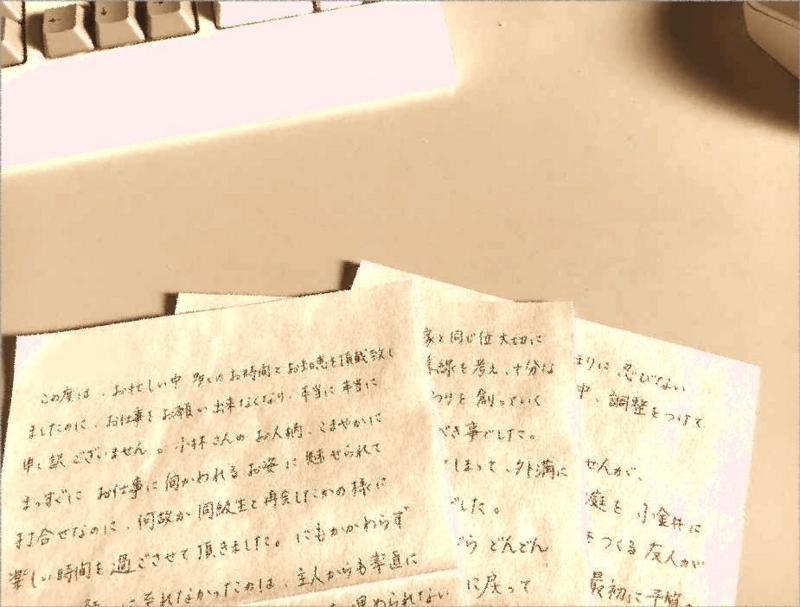 この度は、お忙しい中 多くのお時間とお知恵を頂戴致し
ましたのに、お仕事をお願い出来なくなり、本当に本当に
申し訳ございません。小林さんのお人柄、こまやかに
まっすぐに お仕事に伺かわれるお姿に魅せられて
打合せなのに、何故か同級生と再会したかの様に
楽しい時間を過ごさせて頂きました。にもかかわらず
に至れなかったかは、主人からも率直に
められない
家と同じ位大切に
線を考え、十分な
を創っていく
べき事でした。
しまって、外溝に
でした。
どんどん
に戻って
まりに忍びない
中、調整をつけて
せんが、
庭を小金井に
をつくる友人が
最初に予